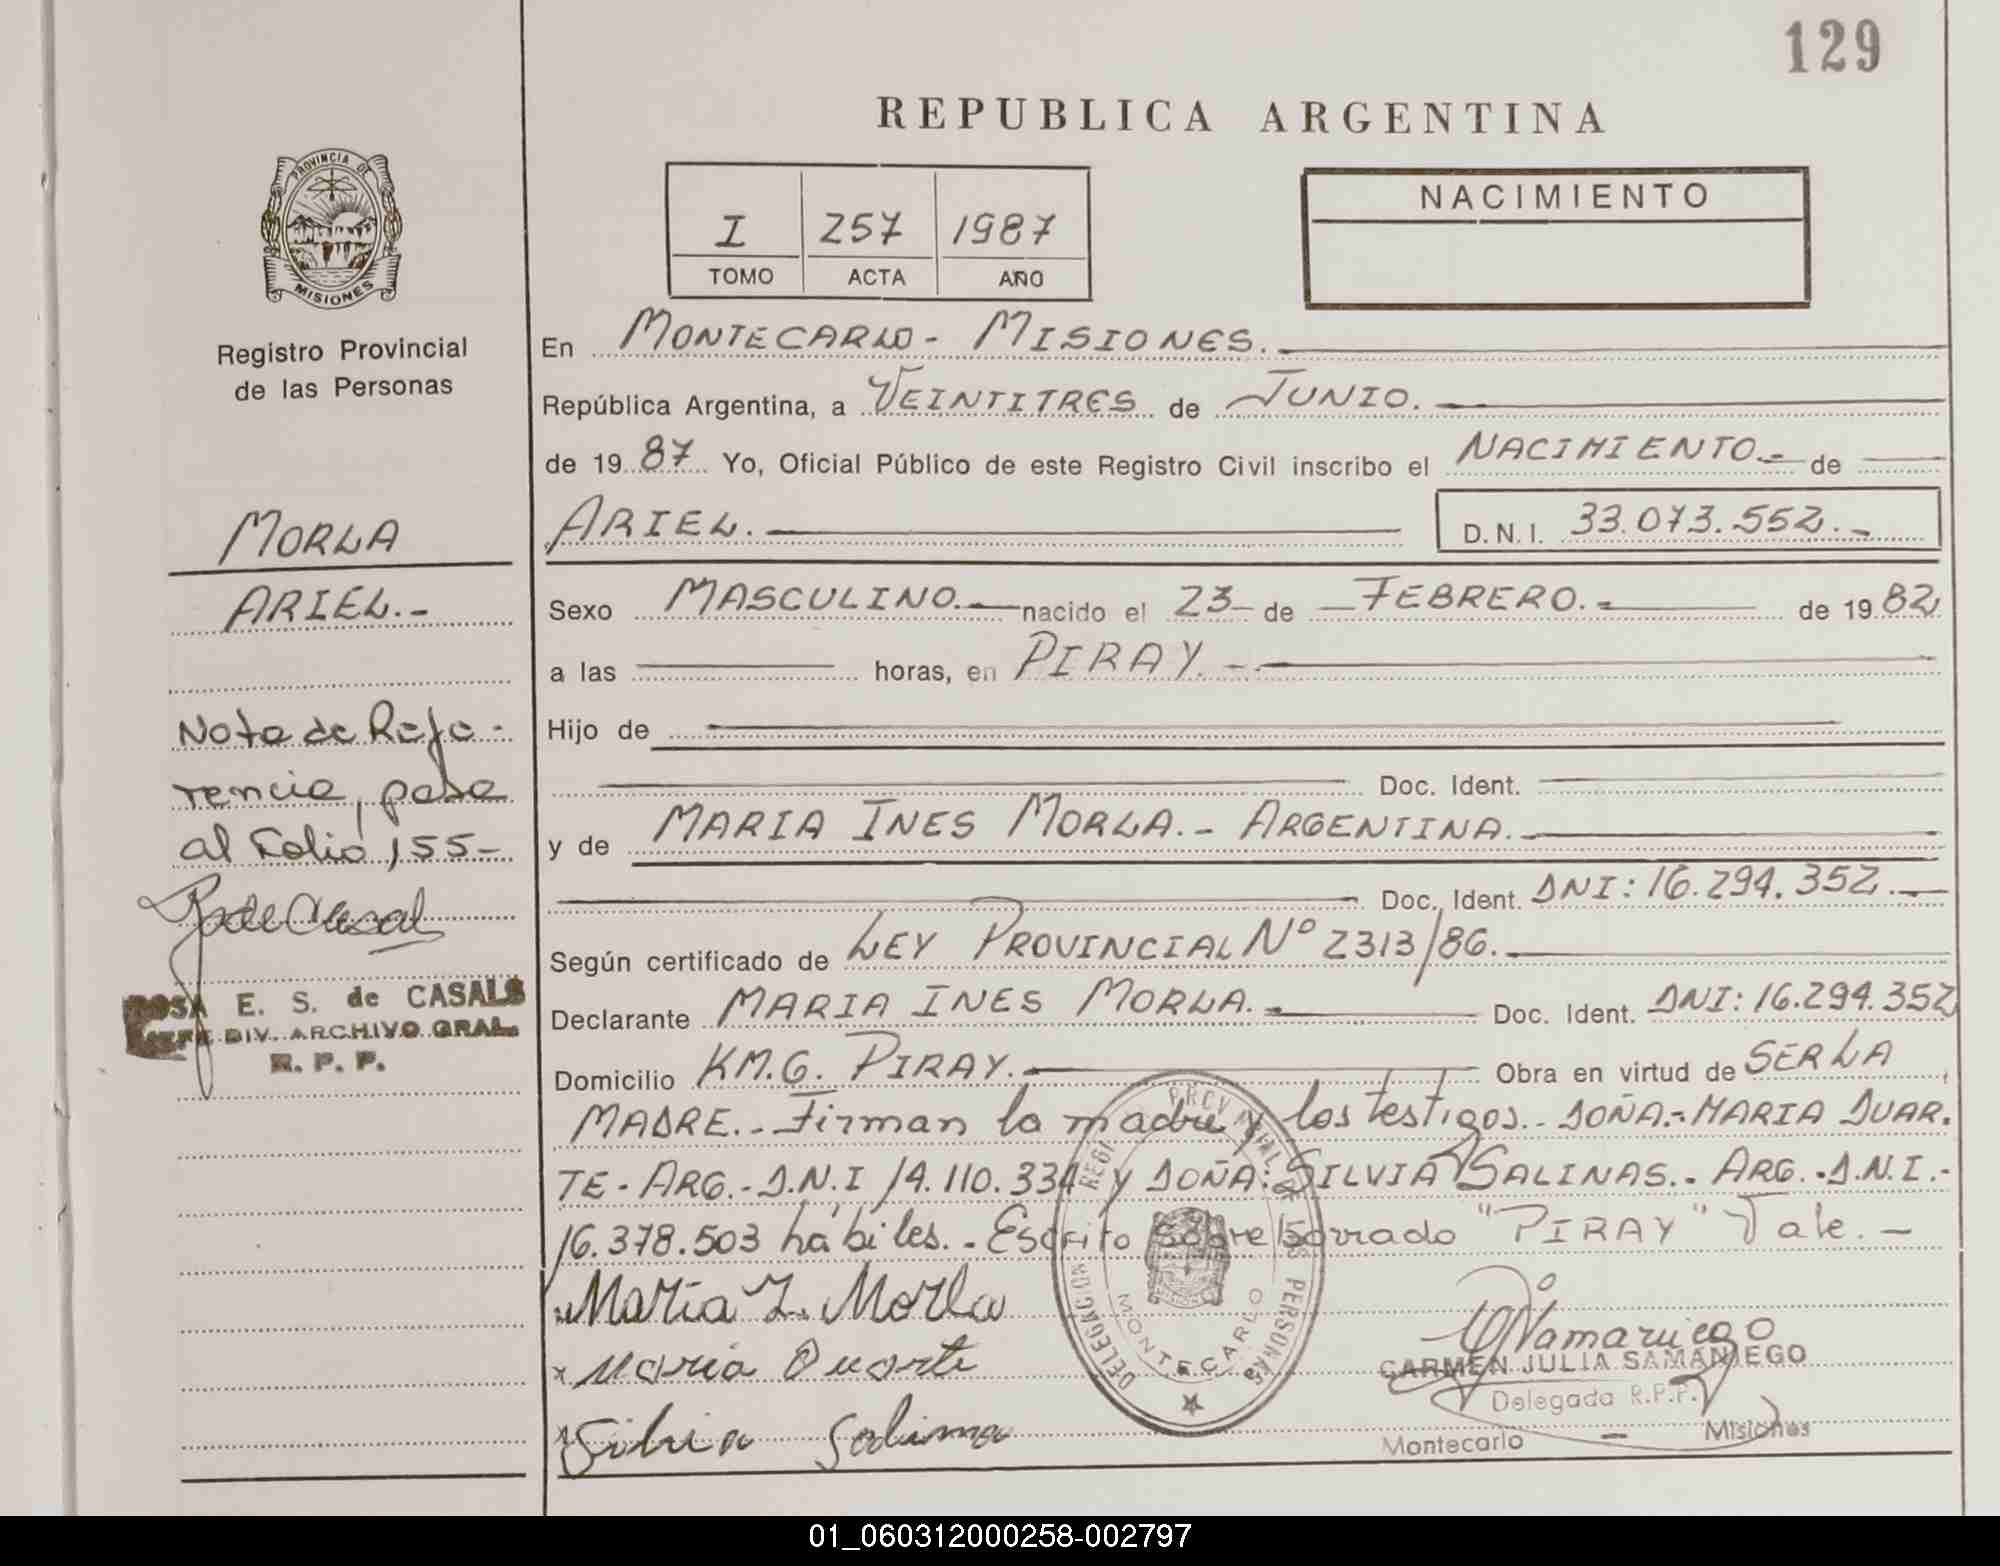 129
REPUBLICA ARGENTINA
PROVINCIA DE
MISIONES
Registro Provincial
de las Personas
I 257 1987
TOMO ACTA AÑO
NACIMIENTO
En MONTECARLO - MISIONES.
República Argentina, a VEINTITRES de JUNIO.
de 19 87 Yo, Oficial Público de este Registro Civil inscribo el NACIMIENTO.- de
ARIEL. D.N.I. 33.073.552.-
Sexo MASCULINO.- nacido el 23- de FEBRERO.- de 19 82
a las horas, en PIRAY.-
Hijo de
Doc. Ident.
y de MARIA INES MORLA.- ARGENTINA.
Doc. Ident. DNI: 16.294.352.-
Según certificado de LEY PROVINCIAL Nº 2313/86.
Declarante MARIA INES MORLA.- Doc. Ident. DNI: 16.294.352
Domicilio KM.6. PIRAY. Obra en virtud de SER LA
MADRE.- Firman la madre y los testigos.- DOÑA.- MARIA DUAR.
TE - ARG.- D.N.I 14.110.334 y DOÑA: SILVIA SALINAS.- ARG.- D.N.I.-
16.378.503 hábiles.- Escrito sobre borrado "PIRAY" Vale.-
María I. Morla
x Maria Duarte
x Silvia Salina
CARMEN JULIA SAMANIEGO
Delegada R.P.P.
Montecarlo - Misiones
DELEGACION REGI PROVINCIAL PERSONAS
MONTECARLO
MORLA
ARIEL.-
Nota de Refe-
rencia, pasa
al Folio 155-
ROSA E. S. de CASALS
JEFE DIV. ARCHIVO GRAL.
R. P. P.
01_060312000258-002797